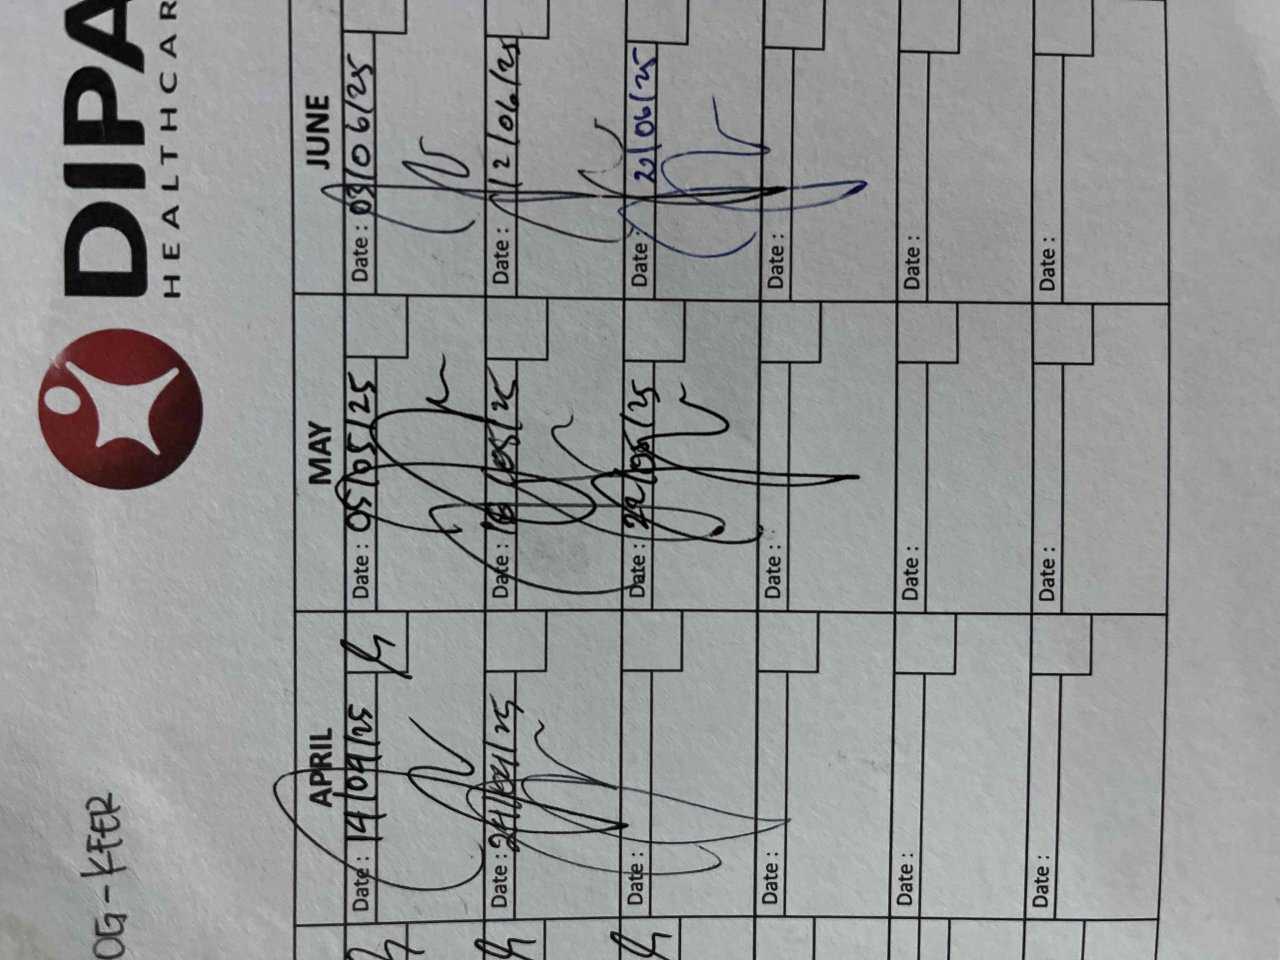 OG-KEER
DIPA
HEALTHCAR
APRIL MAY JUNE
Date: 14/04/25 Date: 05/05/25 Date: 03/06/25
Date: 24/04/25 Date: /05/25 Date: 12/06/25
Date: Date: 22/05/25 Date: 23/06/25
Date: Date: Date:
Date: Date: Date:
Date: Date: Date: